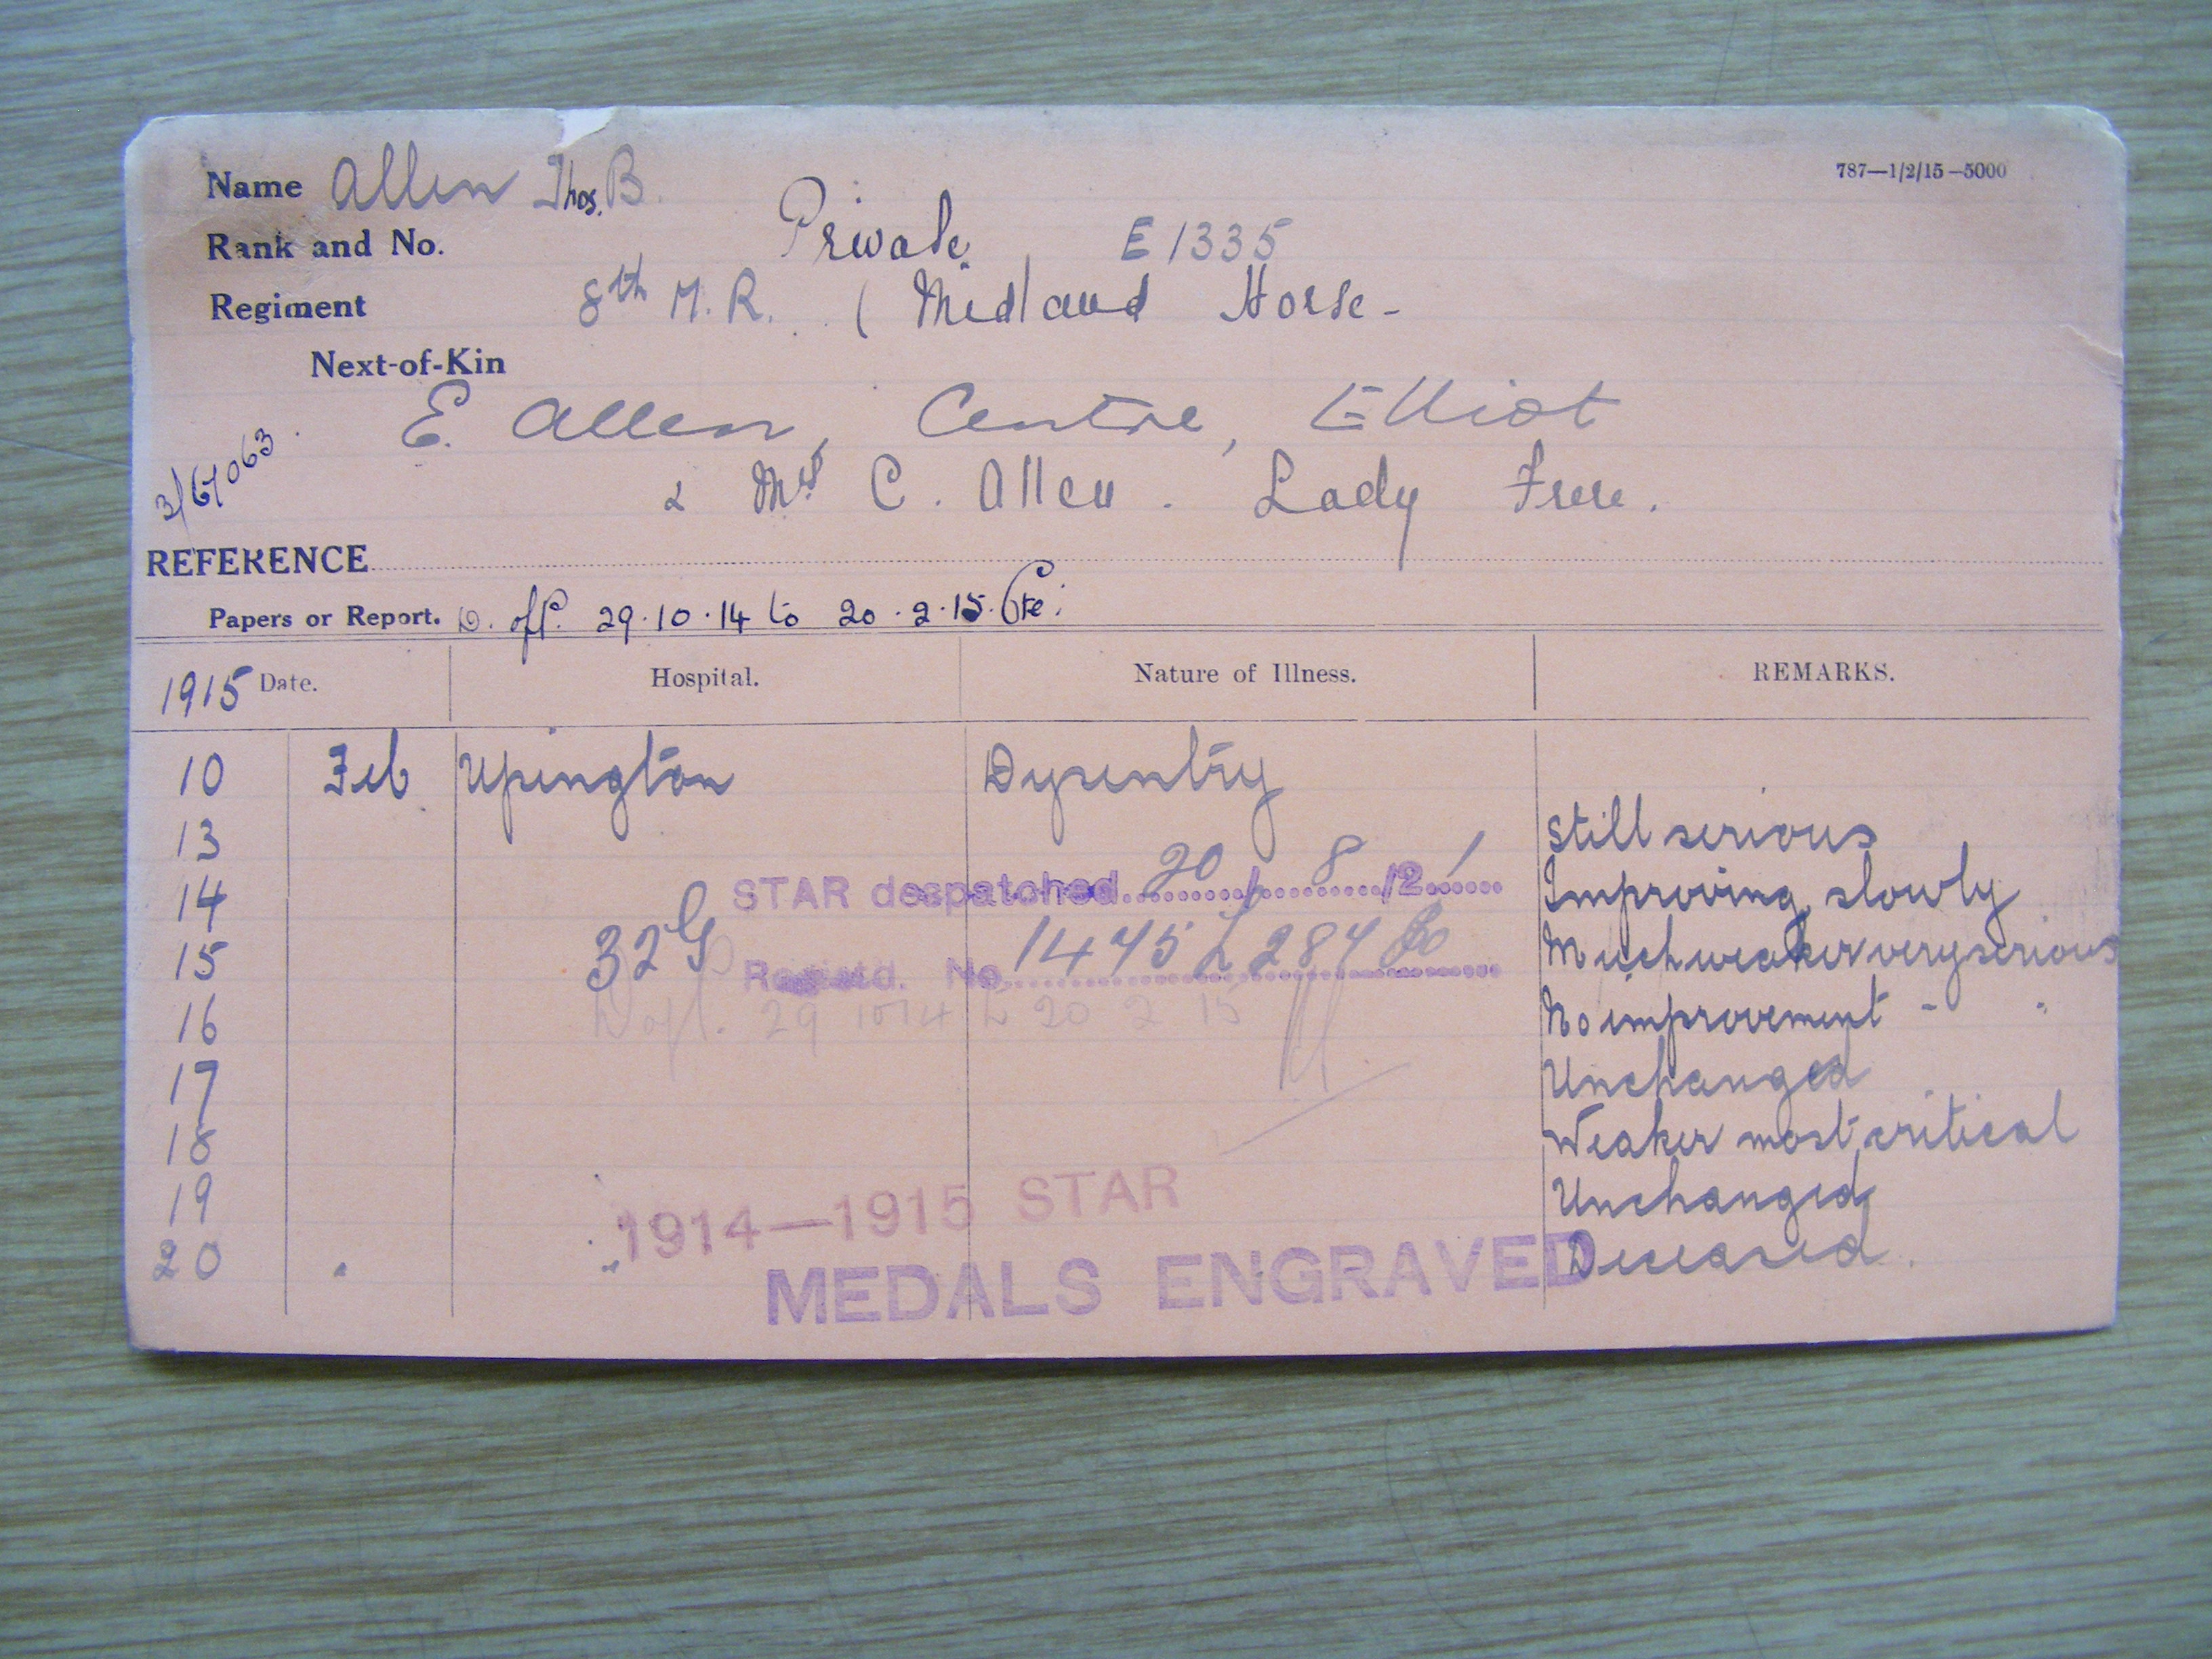 787—1/2/15—5000
Name Allen Thos. B.
Rank and No. Private E 1335
Regiment 8th M.R. (Midland Horse-
Next-of-Kin
E. Allen, Centre, Elliot
& Mrs C. Allen. Lady Frere.
3/61063
REFERENCE
Papers or Report. D. off. 29.10.14 to 20.2.15. Pte.
1915 Date. Hospital. Nature of Illness. REMARKS.
10 Feb Upington Dysentry
13 Still serious
STAR despatched 20/8/21
14 Improving slowly
32 G Registd. No. 1475
15 Much weaker very serious
D off. 29 10 14 to 20 2 15
16 No improvement - "
17 Unchanged
18 Weaker most critical
19 Unchanged
1914—1915 STAR
20 " " Deceased.
MEDALS ENGRAVED